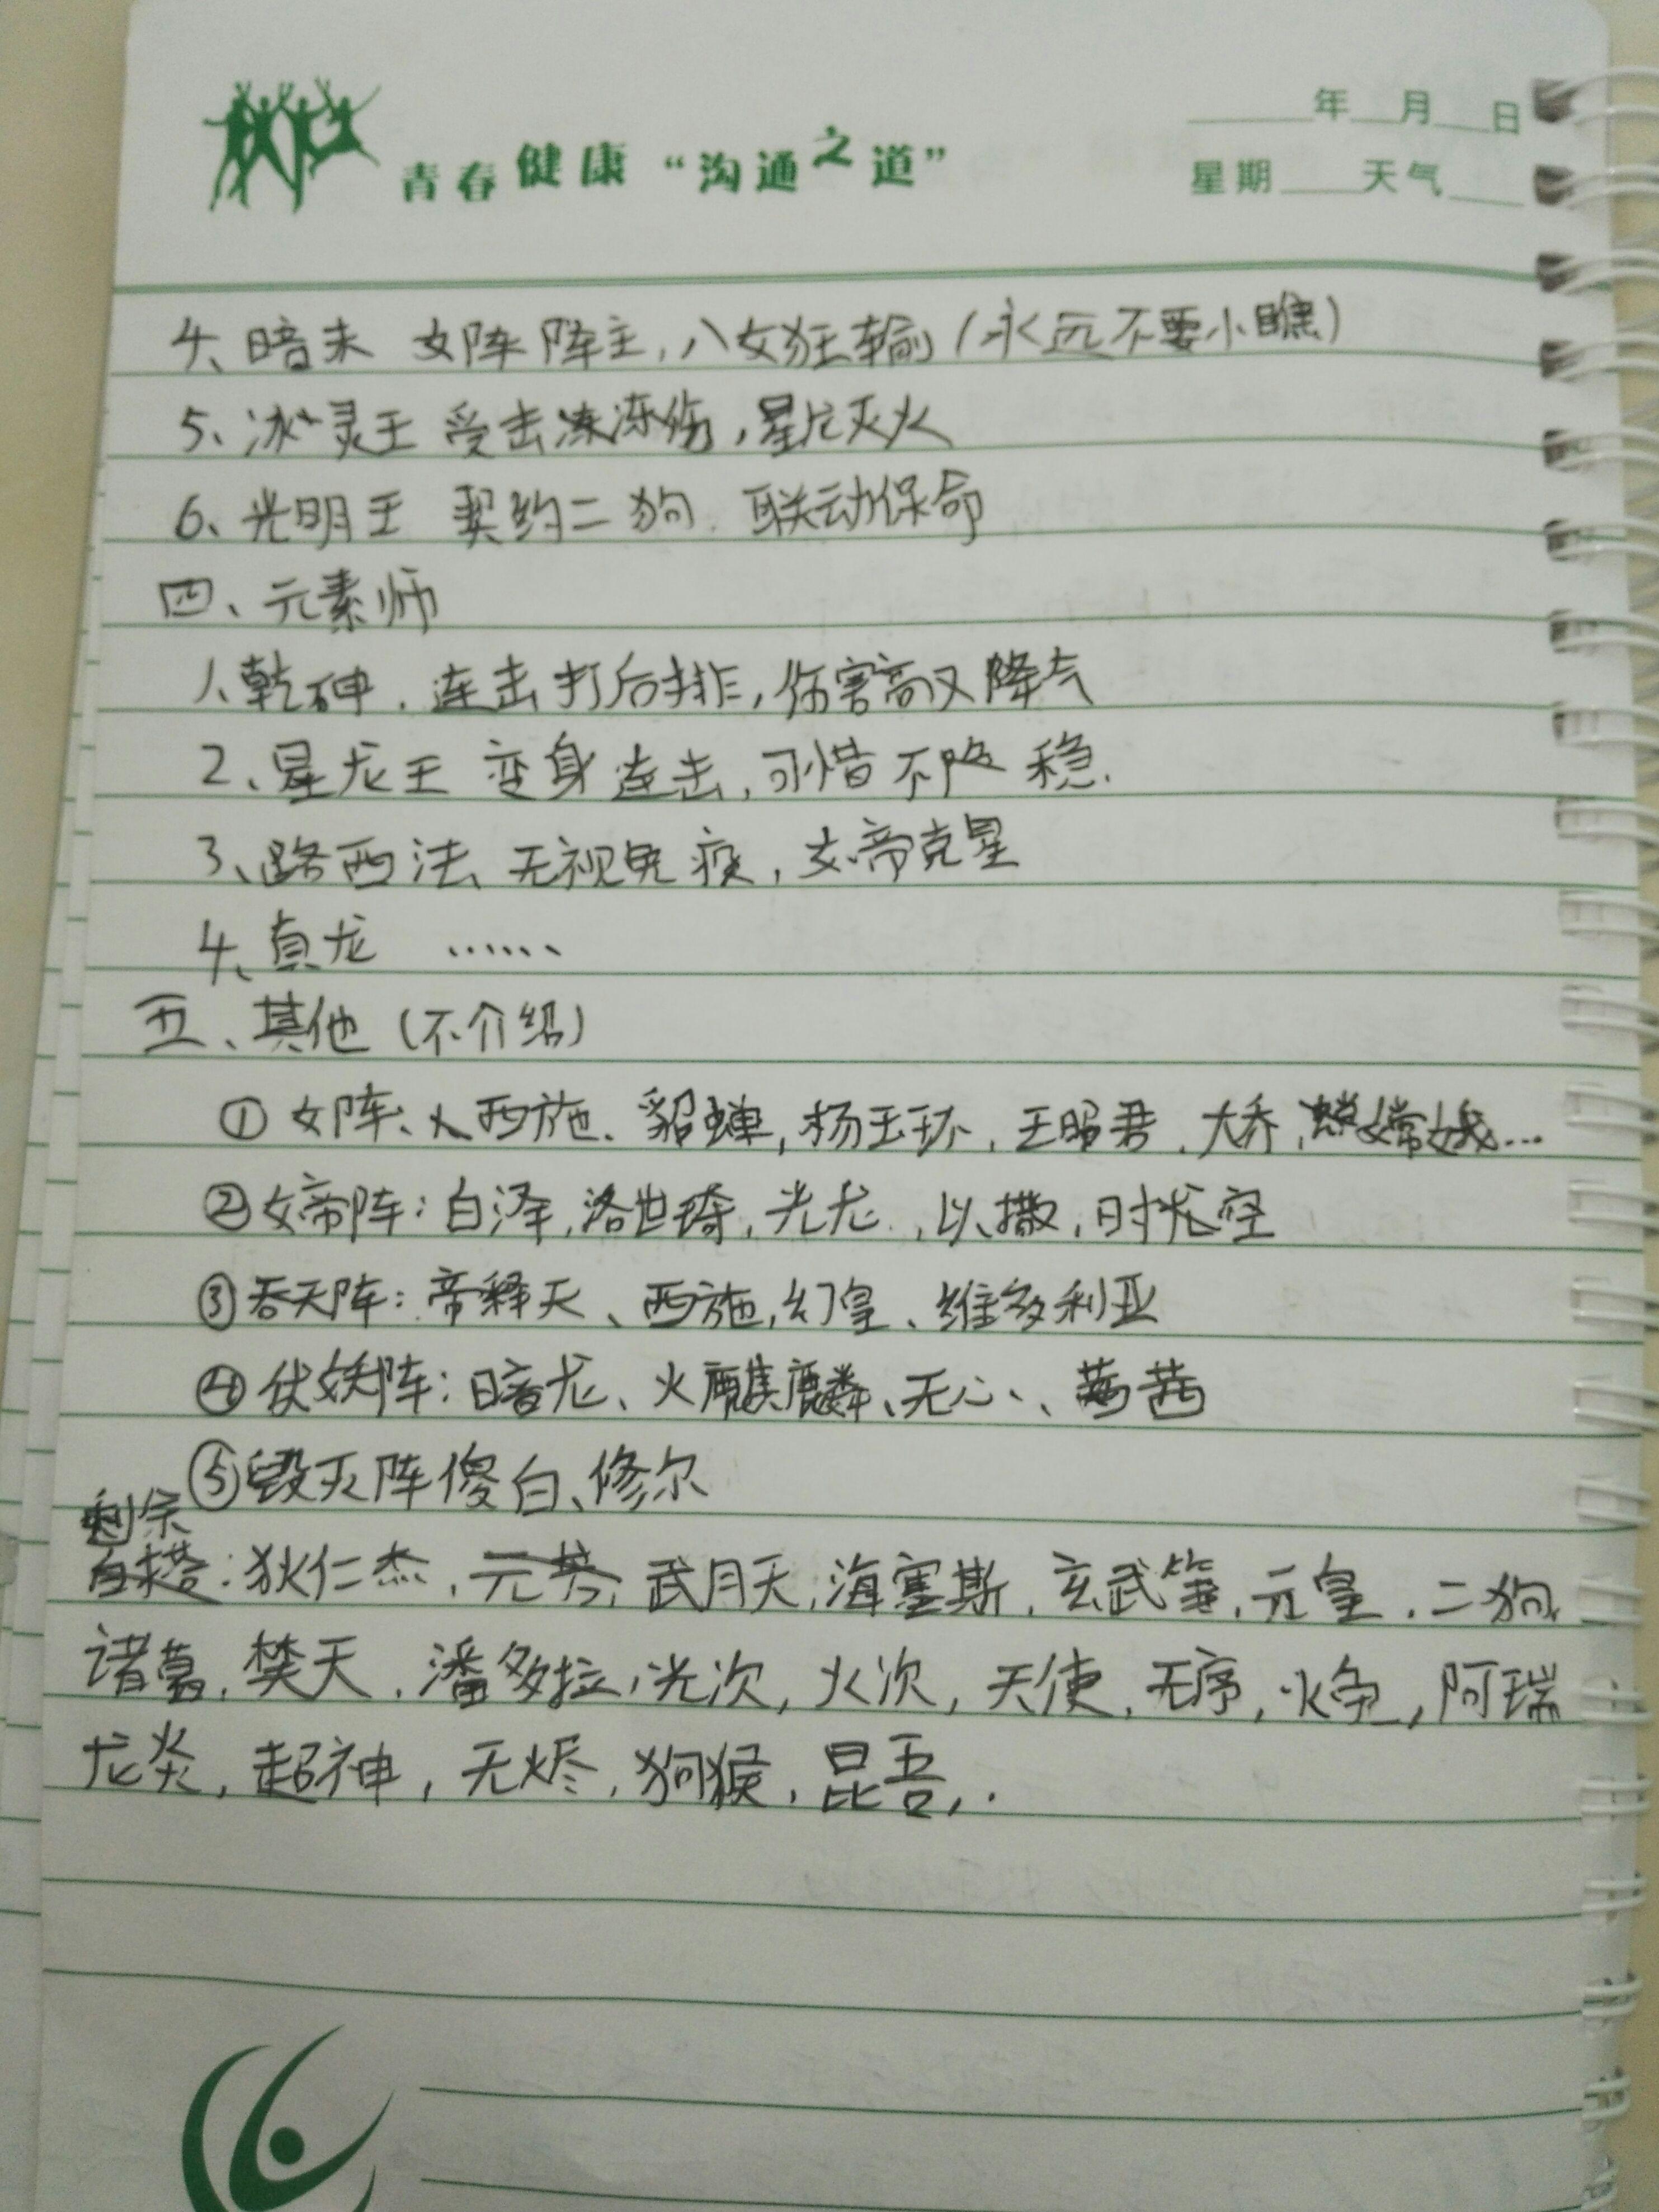 年 月 日
青春健康“沟通之道”
星期 天气
4、暗未 女阵阵主，八女狂输（永远不要小瞧）
5、冰灵王 受击冻伤，星龙灭火
6、光明王 契约二狗. 联动保命
四、元素师
1、乾砷. 连击打后排，伤害高又降气
2、星龙王 变身连击，可惜不降稳.
3、路西法、无视免疫，女帝克星
4、真龙 ……
五、其他（不介绍）
① 女阵：西施、貂蝉，杨玉环，王昭君、大乔，嫦娥…
②女帝阵：白泽，洛世琦，光龙，以撒，时空
③吞天阵：帝释天、西施，幻皇、维多利亚
④伏妖阵：暗龙、火麒麟、无心、茜
⑤毁灭阵 傻白、修尔
剩余
：狄仁杰，武月天，海塞斯，玄武，元皇，二狗，
诸葛，焚天，潘多拉，光次，火次，天使，无序，火争，阿瑞
龙炎，超神，无烬，狗猴，昆吾，.